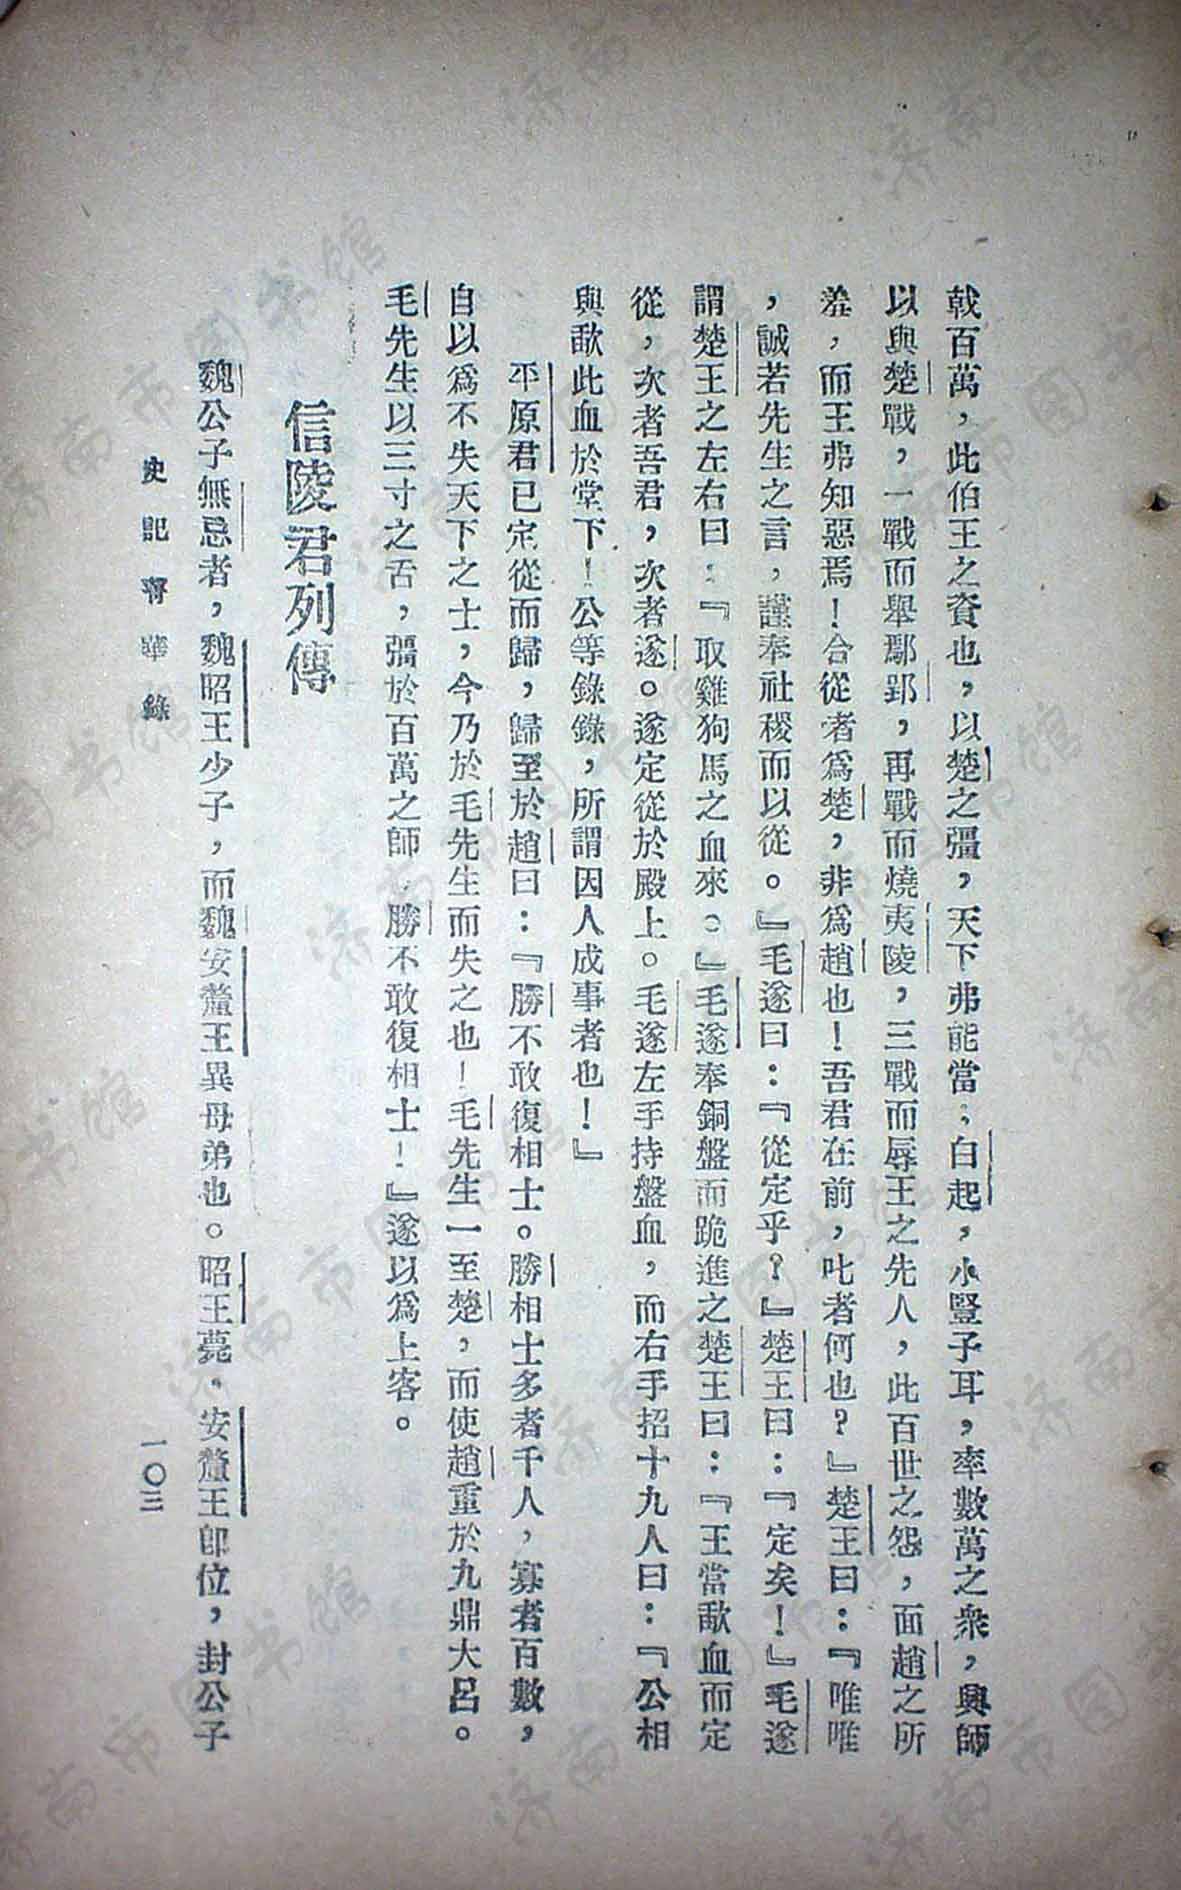 戟百萬，此伯王之資也，以楚之彊，天下弗能當；白起，小豎子耳，率數萬之衆，興師
以與楚戰，一戰而舉鄢郢，再戰而燒夷陵，三戰而辱王之先人，此百世之怨，而趙之所
羞，而王弗知惡焉！合從者爲楚，非爲趙也！吾君在前，叱者何也？』楚王曰：『唯唯
，誠若先生之言，謹奉社稷而以從。』毛遂曰：『從定乎？』楚王曰：『定矣！』毛遂
謂楚王之左右曰：『取雞狗馬之血來。』毛遂奉銅盤而跪進之楚王曰：『王當歃血而定
從，次者吾君，次者遂。遂定從於殿上。毛遂左手持盤血，而右手招十九人曰：『公相
與歃此血於堂下！公等錄錄，所謂因人成事者也！』
平原君已定從而歸，歸至於趙曰：『勝不敢復相士。勝相士多者千人，寡者百數，
自以爲不失天下之士，今乃於毛先生而失之也！毛先生一至楚，而使趙重於九鼎大呂。
毛先生以三寸之舌，彊於百萬之師，勝不敢復相士！』遂以爲上客。
信陵君列傳
魏公子無忌者，魏昭王少子，而魏安釐王異母弟也。昭王薨，安釐王卽位，封公子
史記菁華錄
一〇三
济南市图书馆